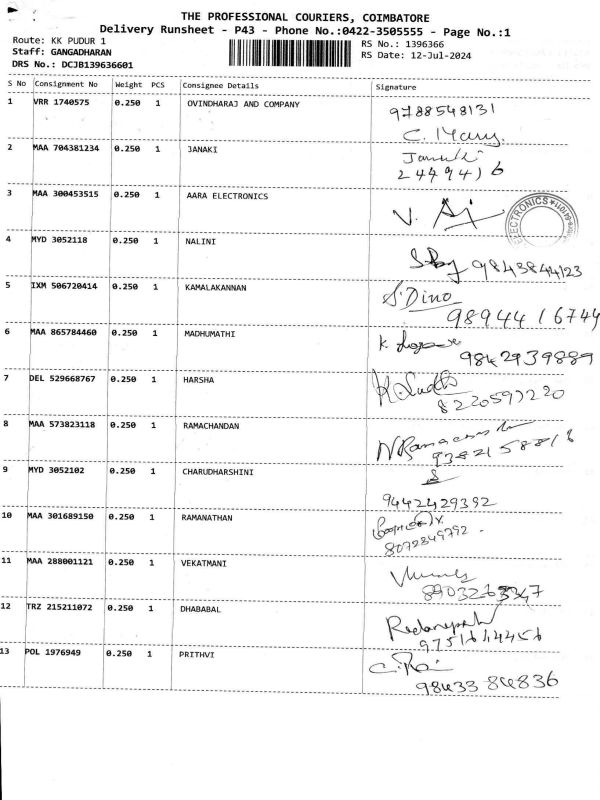 THE PROFESSIONAL COURIERS, COIMBATORE
Delivery Runsheet - P43 - Phone No.:0422-3505555 - Page No.:1
Route: KK PUDUR 1
RS No.: 1396366
Staff: GANGADHARAN
RS Date: 12-Jul-2024
DRS No.: DCJB139636601
S No Consignment No Weight PCS Consignee Details Signature
1 VRR 1740575 0.250 1 OVINDHARAJ AND COMPANY 9788548131
C. Mary
2 MAA 704381234 0.250 1 JANAKI Janaki
2449416
3 MAA 300453515 0.250 1 AARA ELECTRONICS V.
ELECTRONICS
4 MYD 3052118 0.250 1 NALINI 9843844123
5 IXM 506720414 0.250 1 KAMALAKANNAN S.Dino
9894416744
6 MAA 865784460 0.250 1 MADHUMATHI K
9842939889
7 DEL 529668767 0.250 1 HARSHA
8220597220
8 MAA 573823118 0.250 1 RAMACHANDAN
9 MYD 3052102 0.250 1 CHARUDHARSHINI
9442429392
10 MAA 301689150 0.250 1 RAMANATHAN
8072349792
11 MAA 288001121 0.250 1 VEKATMANI
12 TRZ 215211072 0.250 1 DHABABAL
9751644456
13 POL 1976949 0.250 1 PRITHVI
98433 84836